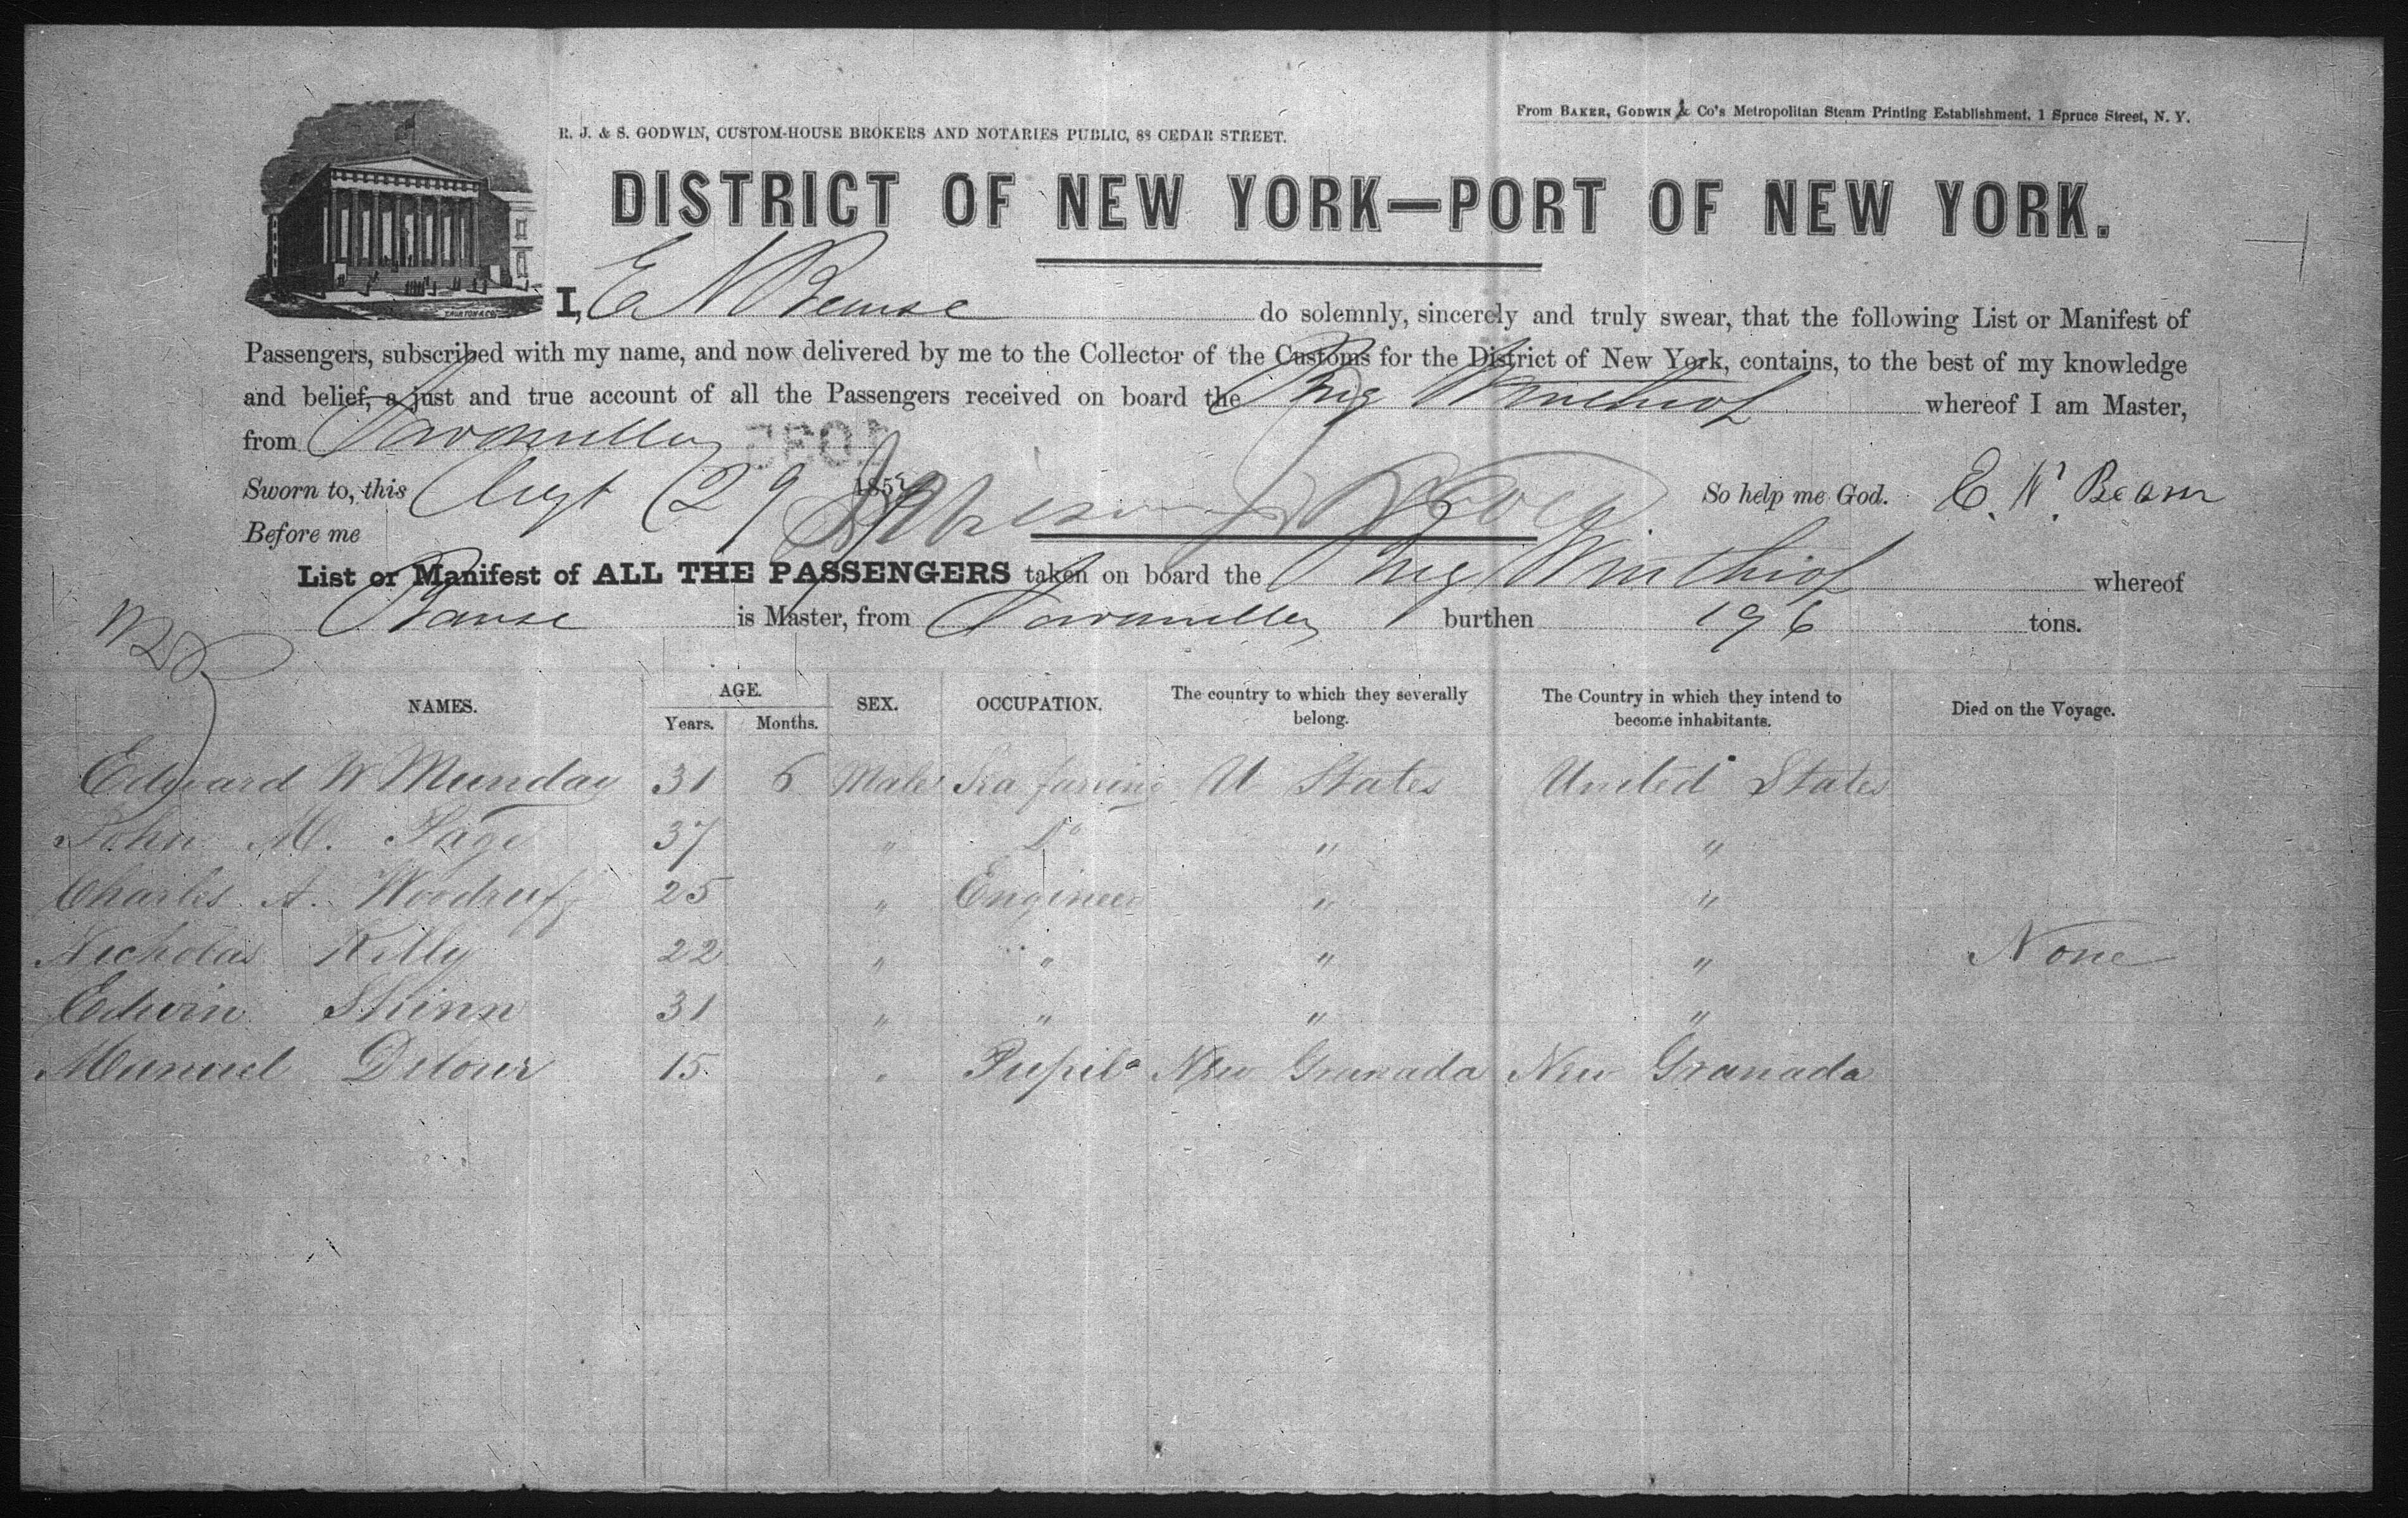 From BAKER, GODWIN & Co's Metropolitan Steam Printing Establishment, 1 Spruce Street, N. Y.
R. J. & S. GODWIN, CUSTOM-HOUSE BROKERS AND NOTARIES PUBLIC, 88 CEDAR STREET.
DISTRICT OF NEW YORK—PORT OF NEW YORK.
I, E N do solemnly, sincerely and truly swear, that the following List or Manifest of
Passengers, subscribed with my name, and now delivered by me to the Collector of the Customs for the District of New York, contains, to the best of my knowledge
and belief, a just and true account of all the Passengers received on board the Brig whereof I am Master,
from Savanilla
Sworn to, this Augt 29 185 So help me God. E. N.
Before me
List or Manifest of ALL THE PASSENGERS taken on board the Brig whereof
is Master, from Savanilla burthen 196 tons.
NAMES. AGE. Years. Months. SEX. OCCUPATION. The country to which they severally belong. The Country in which they intend to become inhabitants. Died on the Voyage.
Edward W Munday 31 6 Male Sea faring U States United States
John M. Page 37 " Do " "
Charles A. Woodruff 25 " Engineer " "
Nicholas Killy 22 " " " " None
Edwin Shinn 31 " " " "
Manuel 15 " Pupil New Granada New Granada